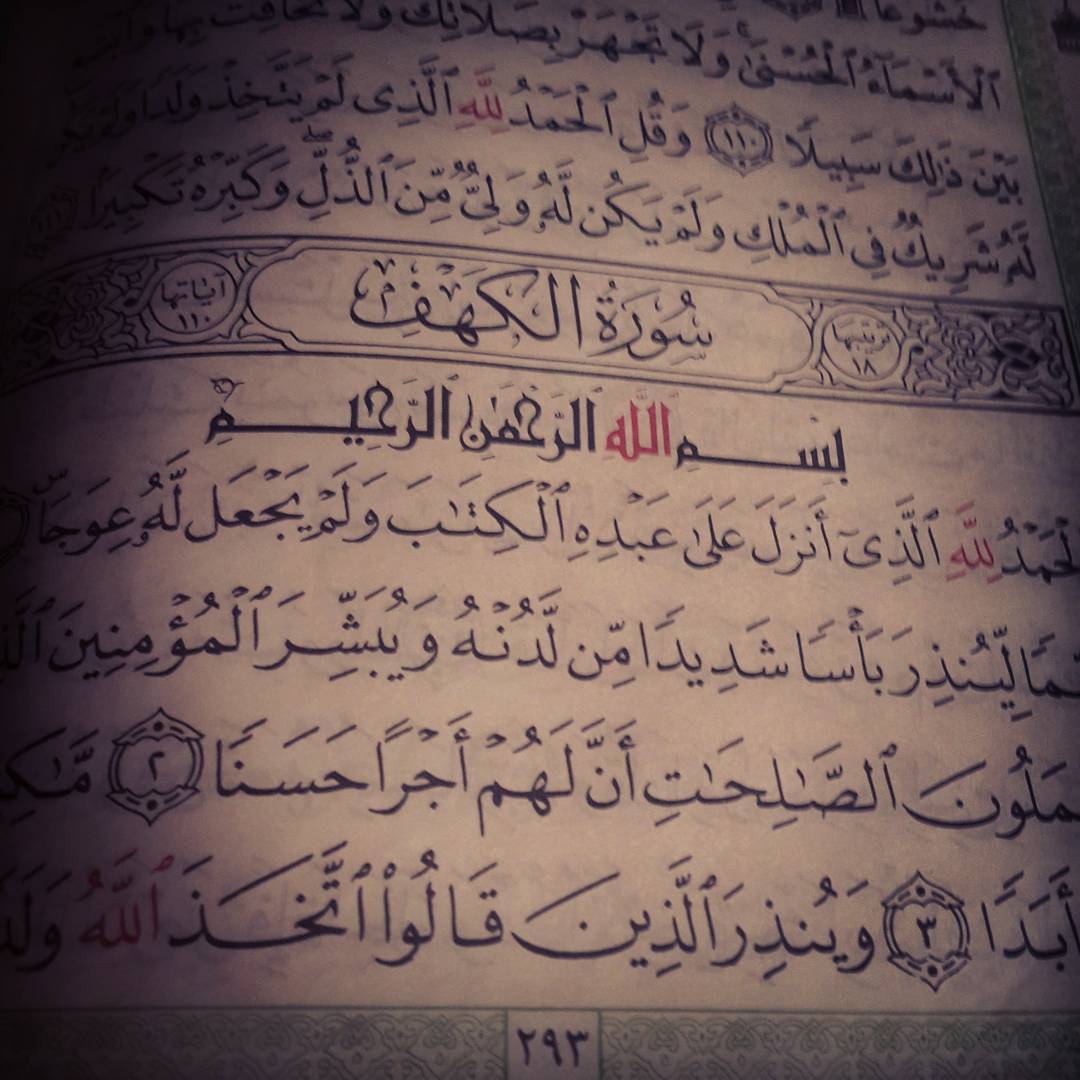 خشوعا
ٱلْأَسْمَآءُ ٱلْحُسْنَىٰ ۚ وَلَا تَجْهَرْ بِصَلَاتِكَ وَلَا تُخَافِتْ بِهَا وَٱبْتَغِ
بَيْنَ ذَٰلِكَ سَبِيلًا ١١٠ وَقُلِ ٱلْحَمْدُ لِلَّهِ ٱلَّذِى لَمْ يَتَّخِذْ وَلَدًا وَلَمْ
لَّهُۥ شَرِيكٌ فِى ٱلْمُلْكِ وَلَمْ يَكُن لَّهُۥ وَلِىٌّ مِّنَ ٱلذُّلِّ ۖ وَكَبِّرْهُ تَكْبِيرًا
ترتيبها ١٨ سُورَةُ الكَهْفِ آياتها ١١٠
بِسْمِ ٱللَّهِ ٱلرَّحْمَٰنِ ٱلرَّحِيمِ
لْحَمْدُ لِلَّهِ ٱلَّذِىٓ أَنزَلَ عَلَىٰ عَبْدِهِ ٱلْكِتَٰبَ وَلَمْ يَجْعَل لَّهُۥ عِوَجَاۜ
مًا لِّيُنذِرَ بَأْسًا شَدِيدًا مِّن لَّدُنْهُ وَيُبَشِّرَ ٱلْمُؤْمِنِينَ
مَلُونَ ٱلصَّٰلِحَٰتِ أَنَّ لَهُمْ أَجْرًا حَسَنًا ٢ مَّٰكِ
أَبَدًا ٣ وَيُنذِرَ ٱلَّذِينَ قَالُوا۟ ٱتَّخَذَ ٱللَّهُ وَلَ
٢٩٣